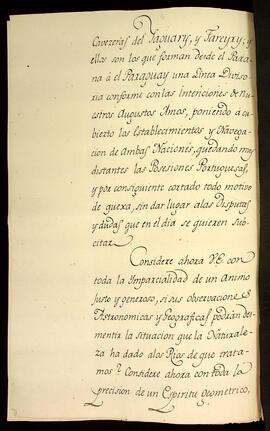 Cavezerias del Yaguary, y Tareyry; y
ellos son los que forman desde el Para=
na á el Paraguay una Linea Diviso
ria conforme con las Intenciones de Nu=
estros Augustos Amos, poniendo á cu=
bierto las Establecimientos y Navega=
cion de Ambas Naciones, quedando muy
distantes las Posesiones Portuguesas,
y por consiguiente cortado todo motivo
de guerra, sin dar lugar alas Disputas
y dudas que en el dia se quieren sus=
citar.
Considere ahora V.E. con
toda la Imparcialidad de un Animo
Justo y generoso, si sus observaciones
Astronomicas y Geograficas podrán des=
mentir la situacion que la Naturale=
za ha dado alos Rios de que trata=
mos? Considere ahora con toda la
precision de un Espiritu geometrico,